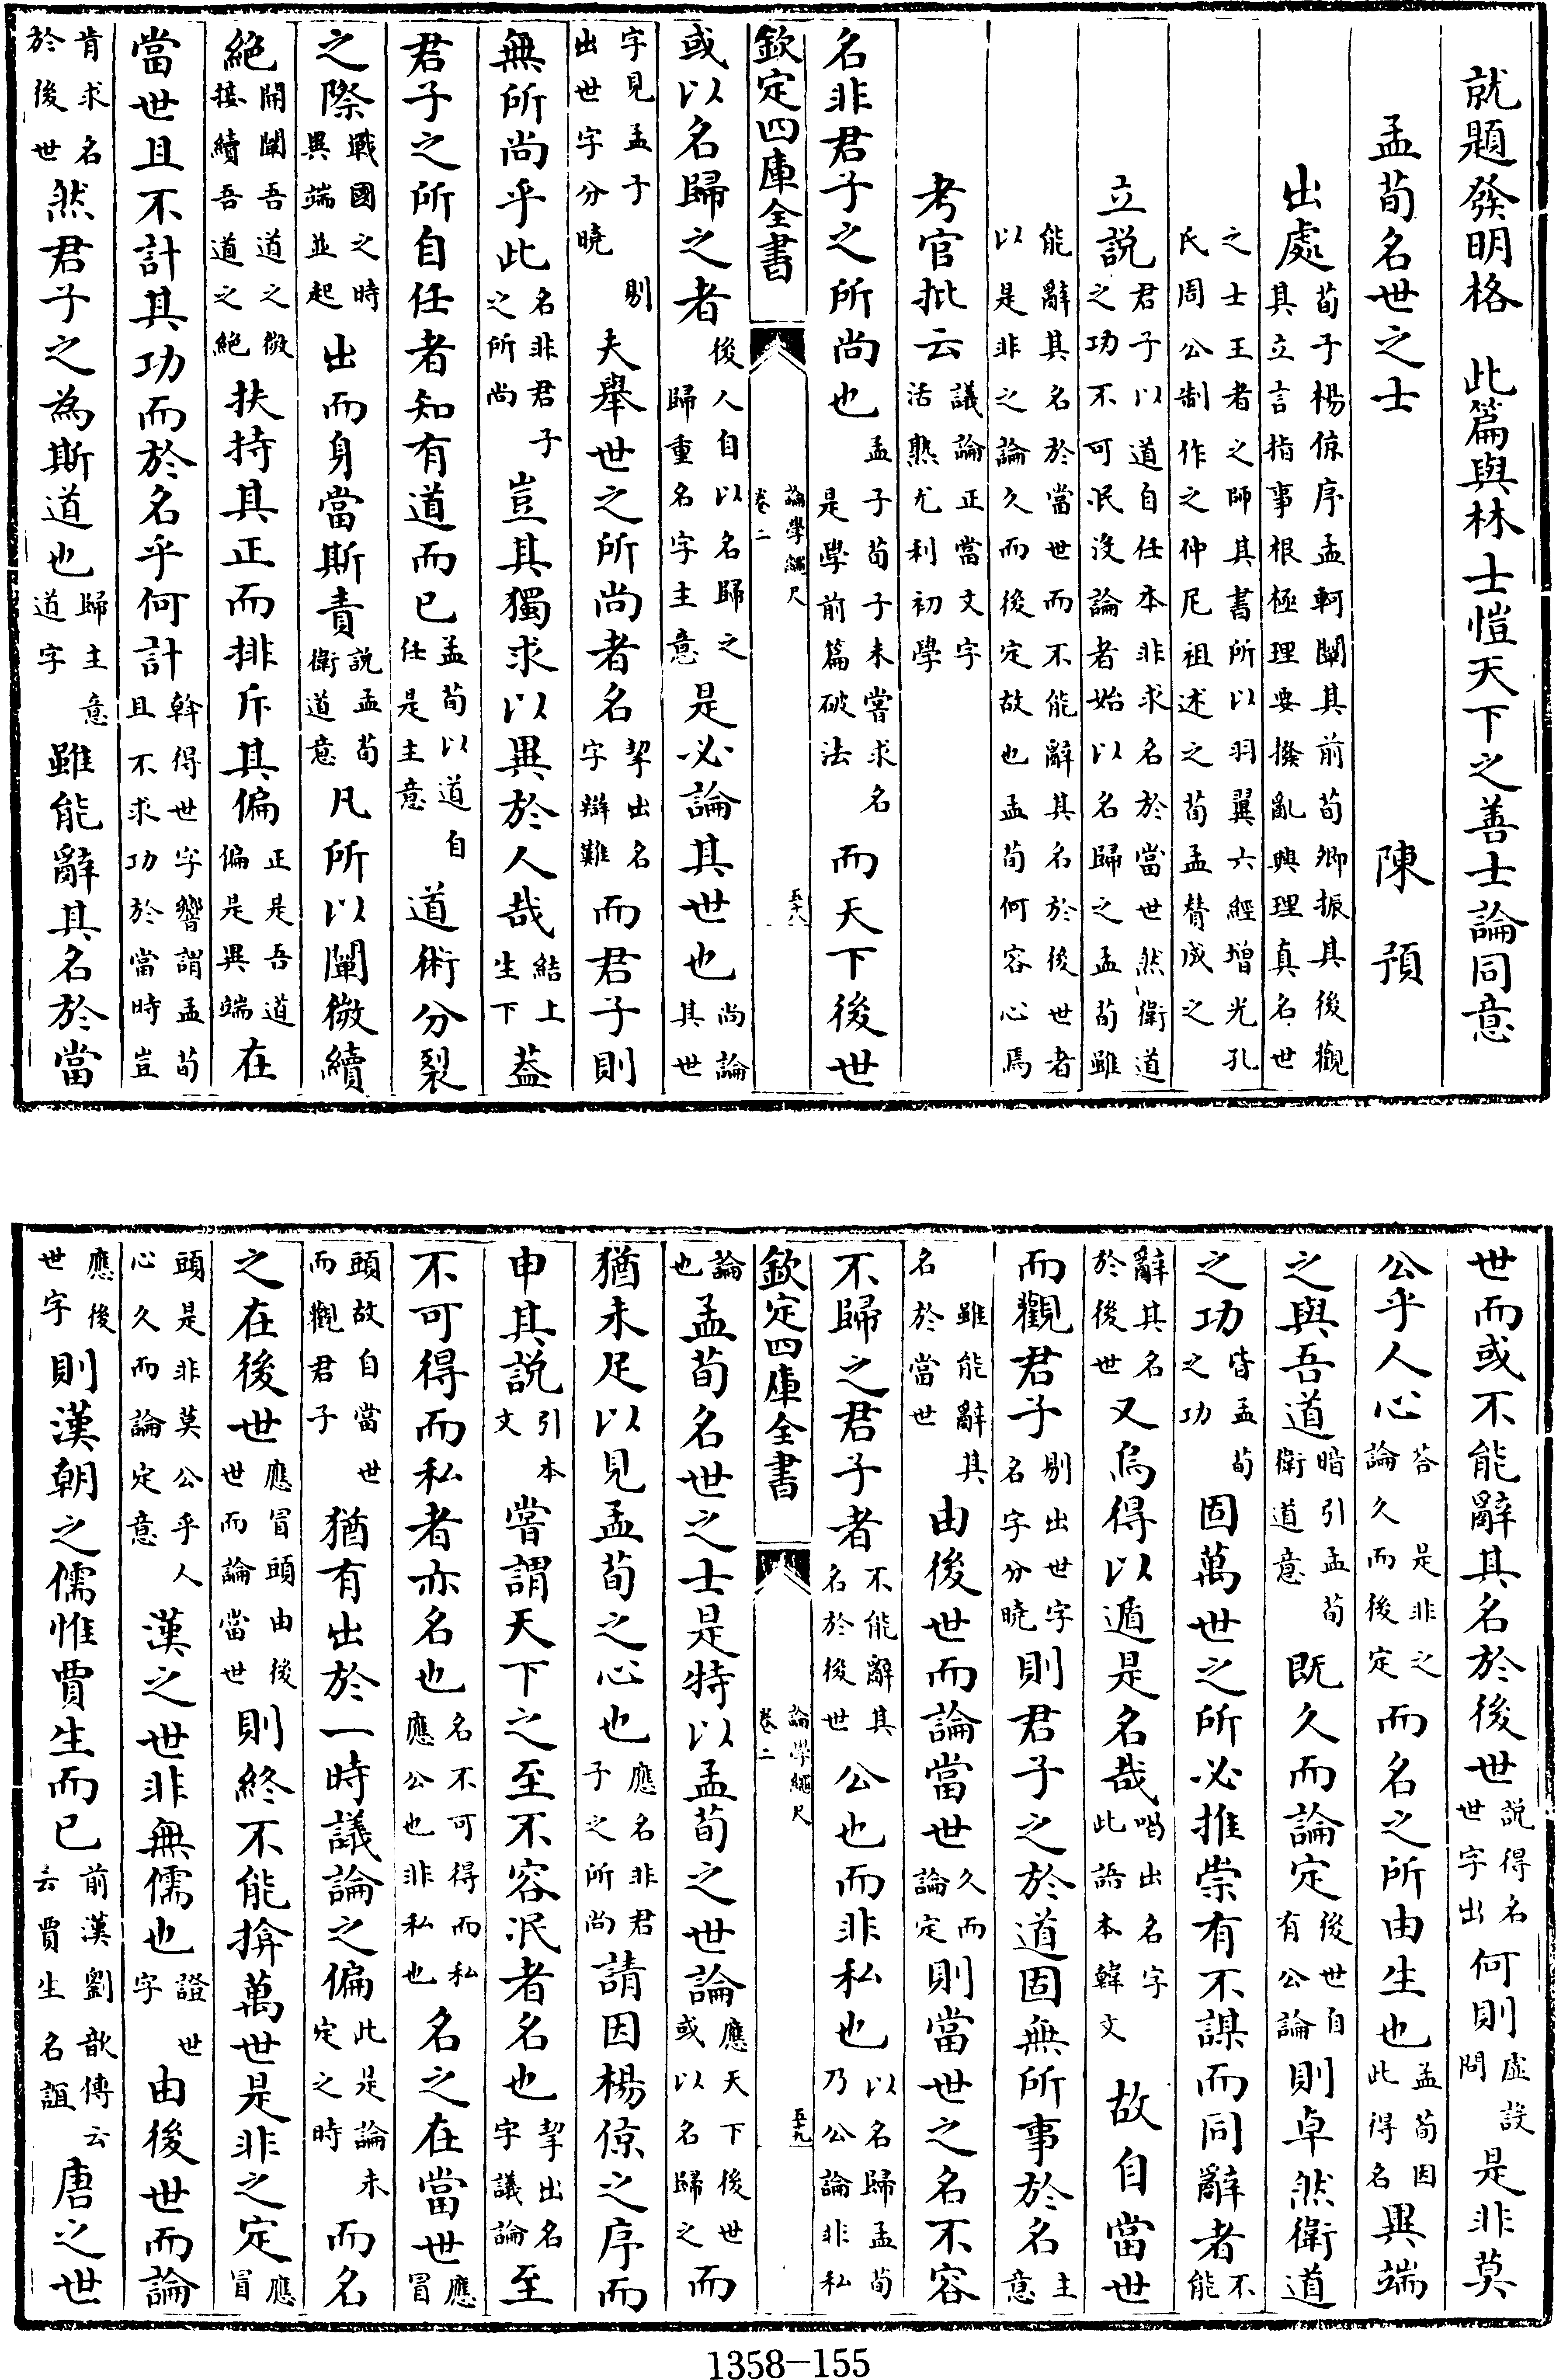 就題發明格　此篇與林士愷天下之善士論同意
孟荀名世之士　陳預
出處荀子楊倞序孟軻闡其前荀卿振其後觀其立言指事根極理要撥亂興理真名世
之士王者之師其書所以羽翼六經增光孔氏周公制作之仲尼祖述之荀孟賛成之
立説君子以道自任本非求名於當世然衛道之功不可泯沒論者始以名歸之孟荀雖
能辭其名於當世而不能辭其名於後世者以是非之論久而後定故也孟荀何容心焉
考官批云議論正當文字活熟尤利初學
名非君子之所尚也孟子荀子未嘗求名是學前篇破法而天下後世
欽定四庫全書　論學繩尺卷二　五十八
或以名歸之者後人自以名歸之歸重名字主意是必論其世也尚論其世
字見孟子出世字分曉　剔夫舉世之所尚者名挈出名字辯難而君子則
無所尚乎此名非君子之所尚豈其獨求以異於人哉結上生下葢
君子之所自任者知有道而已孟荀以道自任是主意道術分裂
之際戰國之時異端並起出而身當斯責說孟荀衛道意凡所以闡微續
絶開闡吾道之微接續吾道之絶扶持其正而排斥其偏正是吾道偏是異端在
當世且不計其功而於名乎何計斡得世字響謂孟荀且不求功於當時豈
肯求名於後世然君子之為斯道也歸主意道字雖能辭其名於當
世而或不能辭其名於後世説得名世字出何則虛設問是非莫
公乎人心答是非之論久而後定而名之所由生也孟荀因此得名異端
之與吾道暗引孟荀衛道意既久而論定後世自有公論則卓然衛道
之功皆孟荀之功固萬世之所必推崇有不謀而同辭者不能
辭其名於後世又烏得以遁是名哉喝出名字此語本韓文故自當世
而觀君子剔出世字名字分曉則君子之於道固無所事於名主意
雖能辭其名於當世由後世而論當世久而論定則當世之名不容
不歸之君子者不能辭其名於後世公也而非私也以名歸孟荀乃公論非私
欽定四庫全書　論學繩尺卷二　五十九
論也孟荀名世之士是特以孟荀之世論應天下後世或以名歸之而
猶未足以見孟荀之心也應名非君子之所尚請因楊倞之序而
申其説引本文嘗謂天下之至不容泯者名也挈出名字議論至
不可得而私者亦名也名不可得而私應公也非私也名之在當世應冒
頭故自當世而觀君子猶有出於一時議論之偏此是論未定之時而名
之在後世應冒頭由後世而論當世則終不能揜萬世是非之定應冒
頭是非莫公乎人心久而論定意漢之世非無儒也證世字由後世而論
應後世字則漢朝之儒惟賈生而已前漢劉歆傳云云賈生名誼唐之世
1358—155